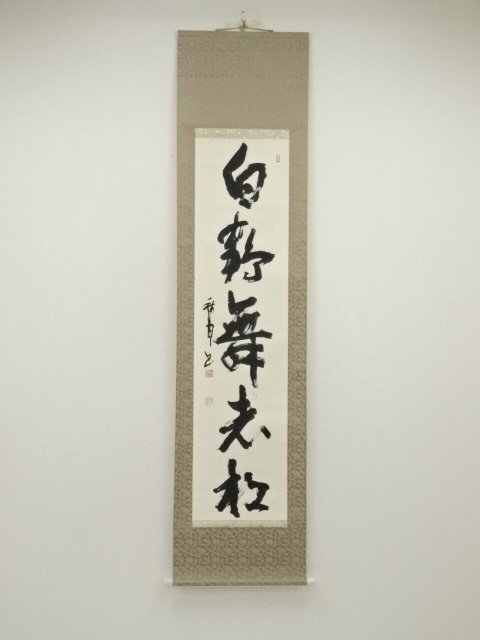 白鶴舞老松